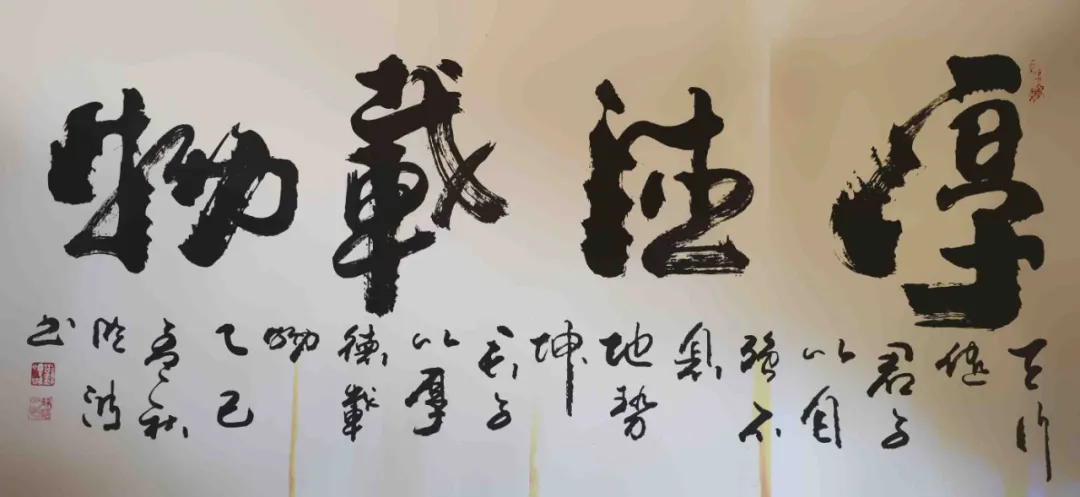 厚德載物
天行
健
君子
以自
強不
息
地勢
坤
君子
以厚
德載
物
乙巳
孟秋
书